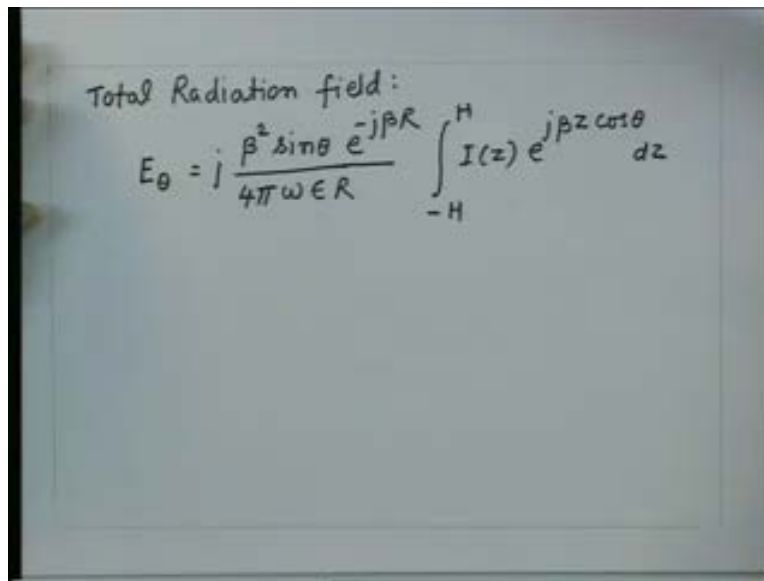 Total Radiation field:
E_θ = j \frac{β² sinθ e^{-jβR}}{4π ω ∈ R} ∫_{-H}^{H} I(z) e^{jβz cosθ} dz